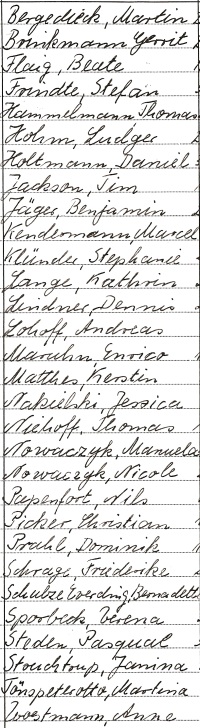 Bergedieck, Martin
Brinkmann Gerrit
Flaig, Beate
Frindte, Stefan
Hammelmann Thomas
Hohm, Ludger
Holtmann, Daniel
Jackson, Tim
Jäger, Benjamin
Kendermann, Marcel
Klünder, Stephanie
Lange, Kathrin
Lindner, Dennis
Lohoff, Andreas
Maruhn, Enrico
Matthes, Kerstin
Nakielski, Jessica
Niehoff, Thomas
Nowaczyk, Manuela
Nowaczyk, Nicole
Papenfort, Nils
Picker, Christian
Prahl, Dominik
Schrage, Friederike
Schulze Everding, Bernadette
Sporbeck, Verena
Steden, Pasqual
Stouchtrup, Janina
Tönspeterotto, Martina
Woestmann, Anne